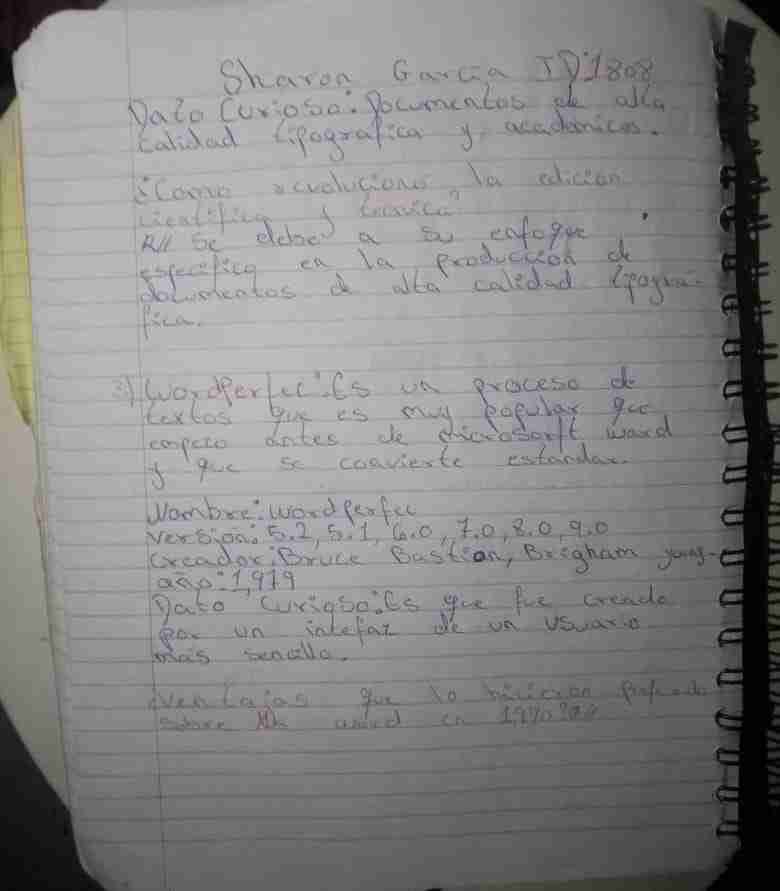 Sharon Garcia ID:1808
Dato Curioso: Documentos de alta
calidad tipografica y academicos.
¿Como revoluciono la edicion
cientifica y tecnica?
R// Se debe a su enfoque
especifico en la produccion de
documentos de alta calidad tipogra-
fica.
3) Wordperfec: Es un proceso de
textos que es muy popular que
empezo antes de microsorft word
y que se convierte estandar.
Nombre: wordperfec
version: 5.2, 5.1, 6.0, 7.0, 8.0, 9.0
Creador: Bruce Bastion, Brigham young-
año: 1,979
Dato Curioso: Es que fue creado
por un intefaz de un usuario
más sencillo.
¿Ventajas que lo hicieron
sobre en